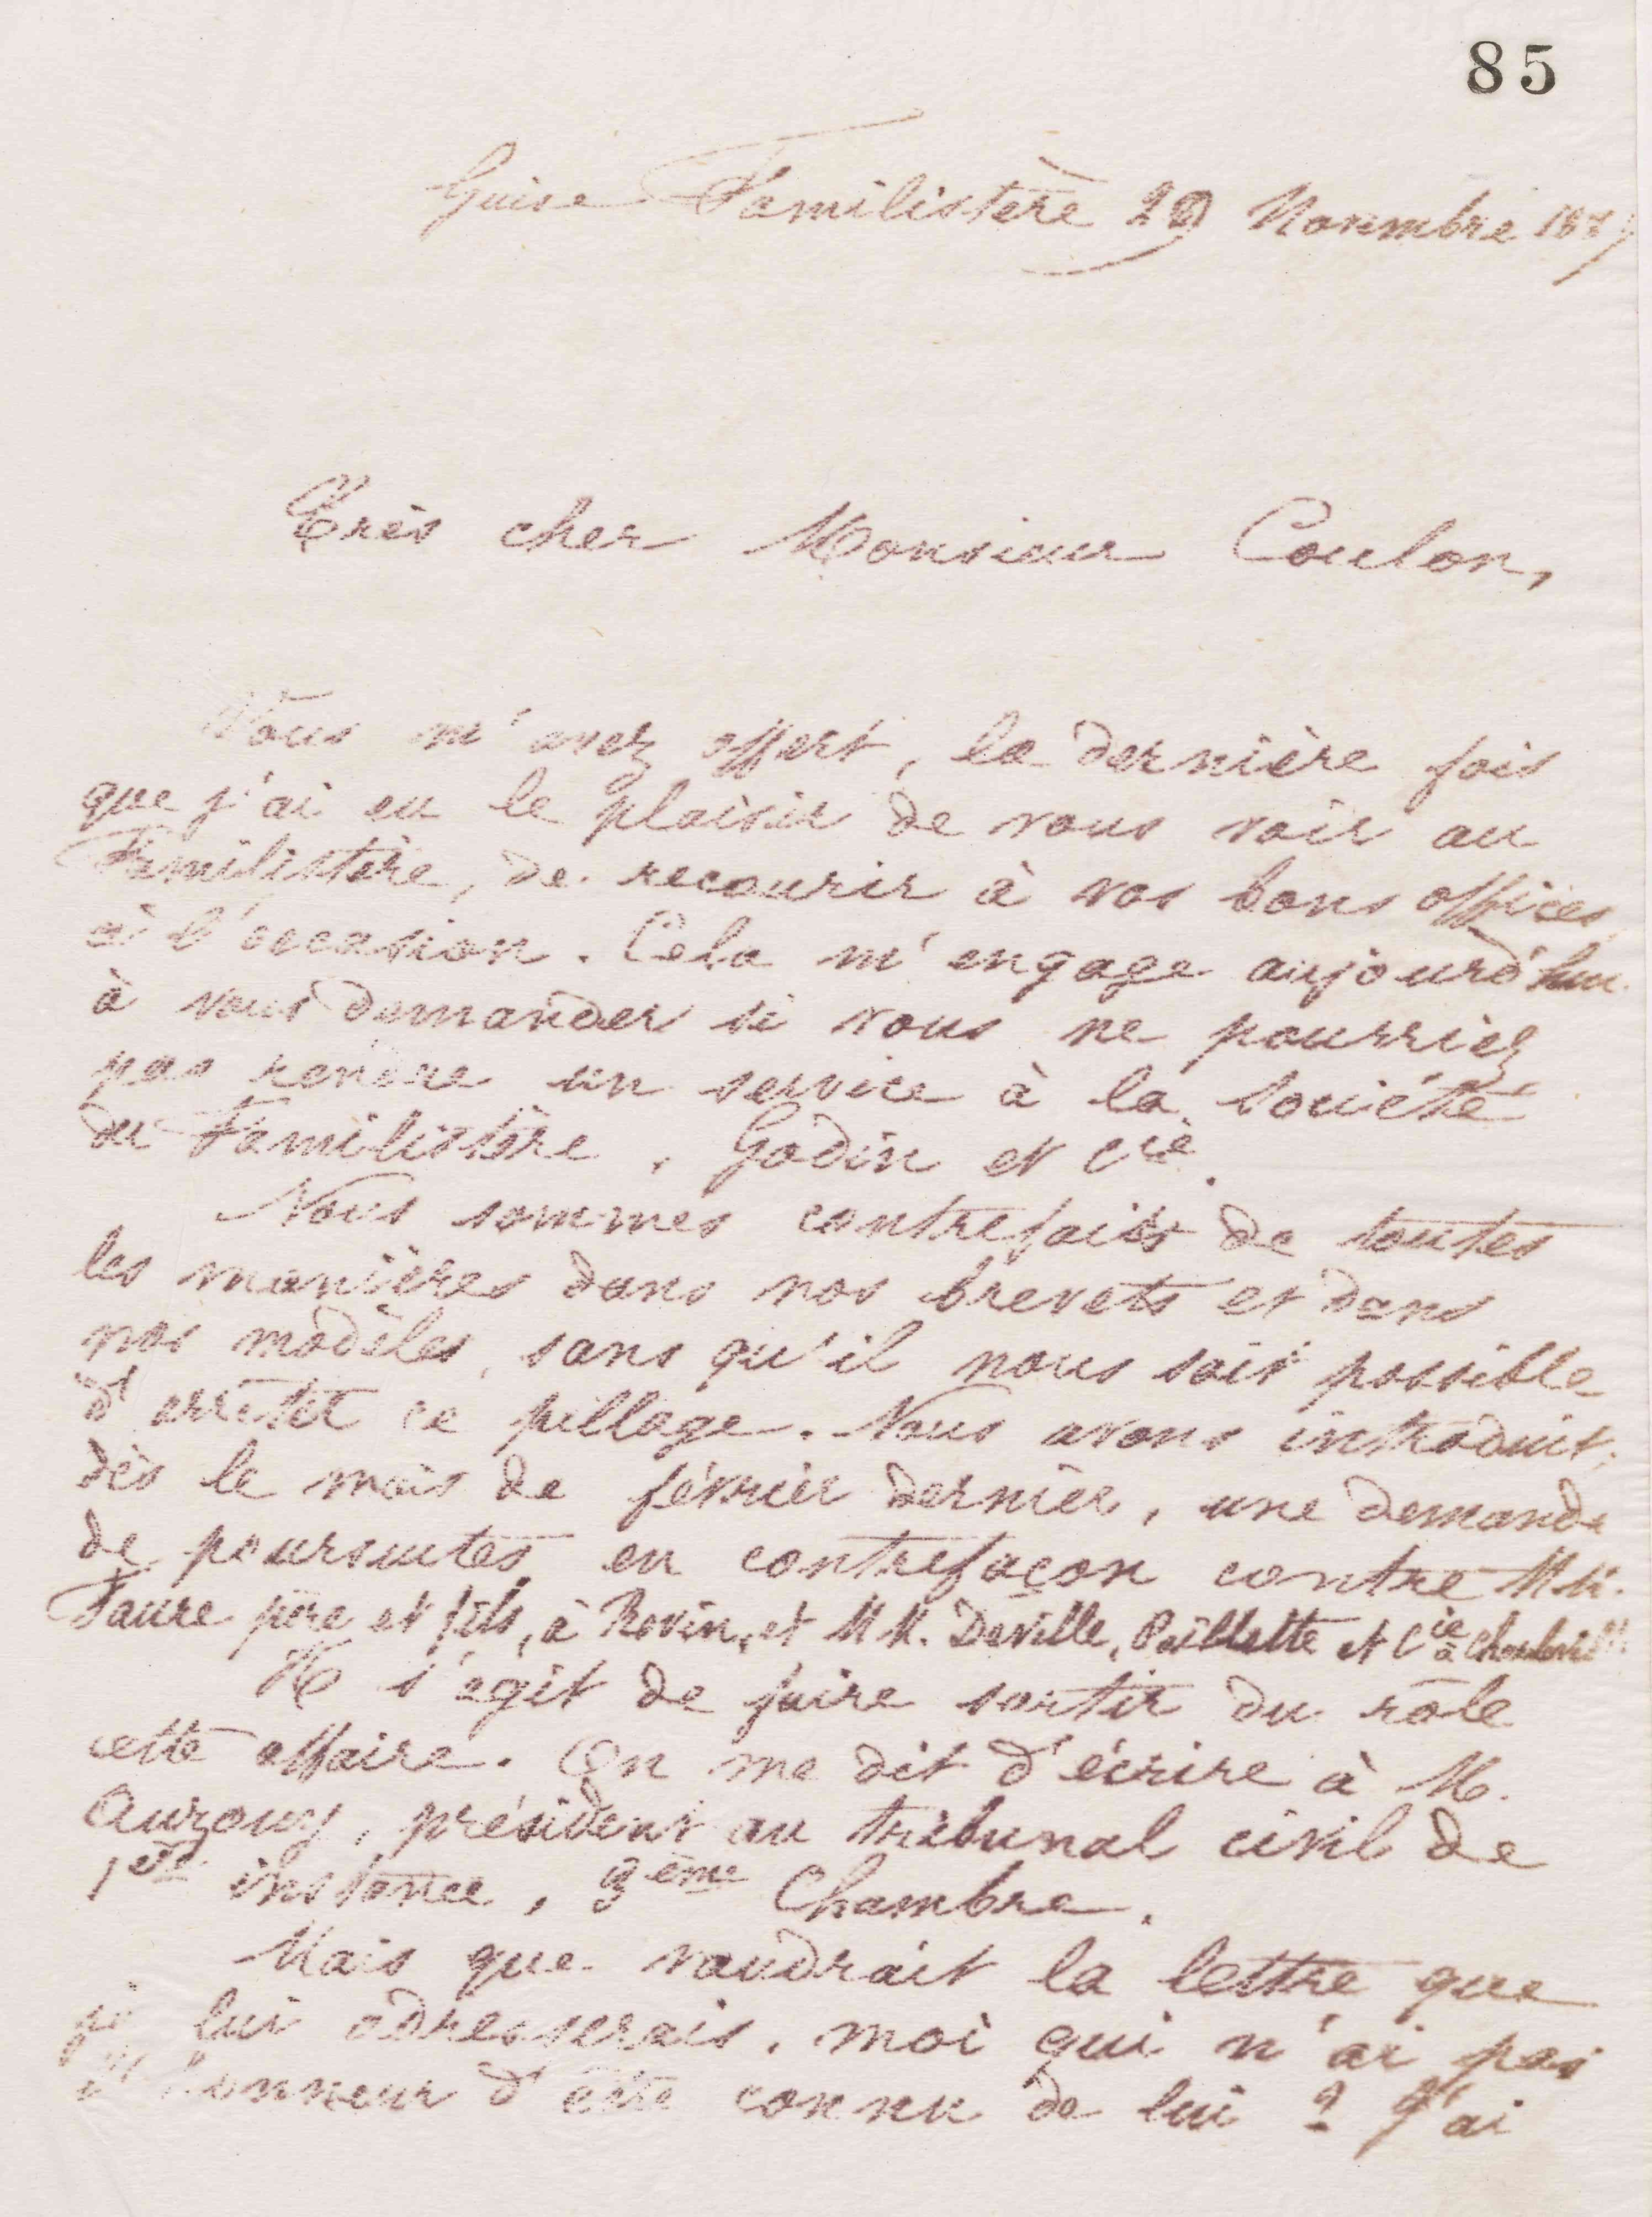 85
Guise Familistère 29 Novembre 188
Très cher Monsieur Coulon,
Vous m'avez offert, la dernière fois
que j'ai eu le plaisir de vous voir au
Familistère, de recourir à vos bons offices
à l'occasion. Cela m'engage aujourd'hui
à vous demander si vous ne pourriez
pas rendre un service à la Société
du Familistère, Godin et Cie.
Nous sommes contrefaits de toutes
les manières dans nos brevets et dans
nos modèles, sans qu'il nous soit possible
d'arrêter ce pillage. Nous avons introduit,
dès le mois de février dernier, une demande
de poursuites en contrefaçon contre MM.
Faure père et fils, à Revin, et MM. Deville, Paillette et Cie à Charleville
Il s'agit de faire sortir du rôle
cette affaire. On me dit d'écrire à M.
Auzouy, président au tribunal civil de
1ère instance, 3ème Chambre.
Mais que vaudrait la lettre que
je lui adresserais, moi qui n'ai pas
l'honneur d'être connu de lui ? J'ai